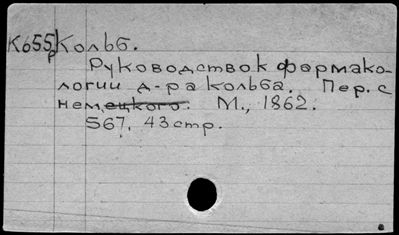 К655р Кольб.
Руководство к фармако-
логии д-ра Кольба. Пер. с
немецкого. М., 1862.
567, 43 стр.